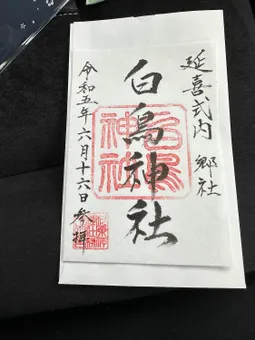 延喜式内 郷社
白鳥神社
白鳥神社
令和五年六月十六日参拝